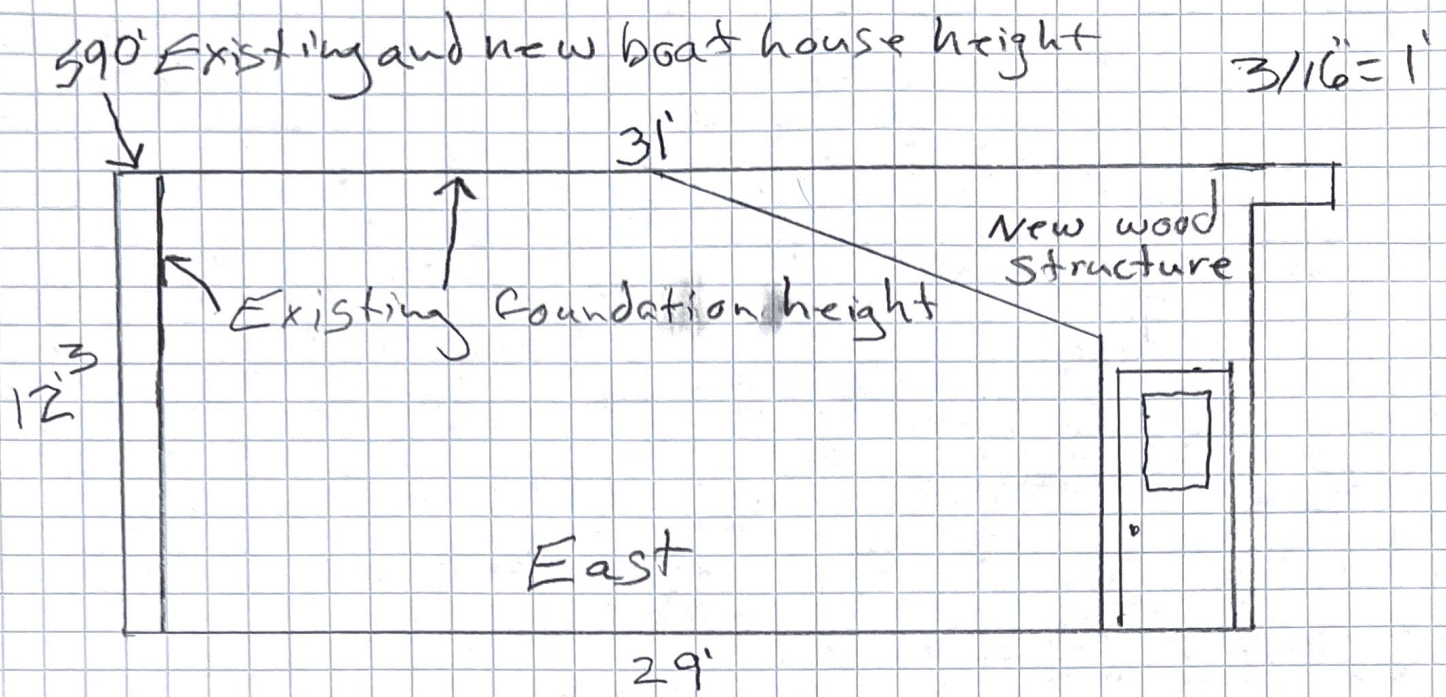 590' Existing and new boat house height
3/16" = 1'
31'
New wood
structure
Existing foundation height
12'3
East
29'